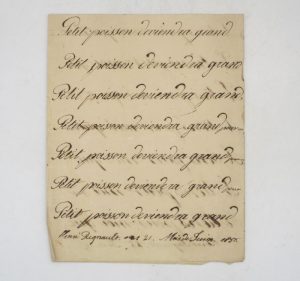 Petit poisson deviendra grand
Petit poisson deviendra grand.
Petit poisson deviendra grand.
Petit poisson deviendra grand
Petit poisson deviendra grand
Petit poisson deviendra grand
Petit poisson deviendra grand
Henri Regnault 21